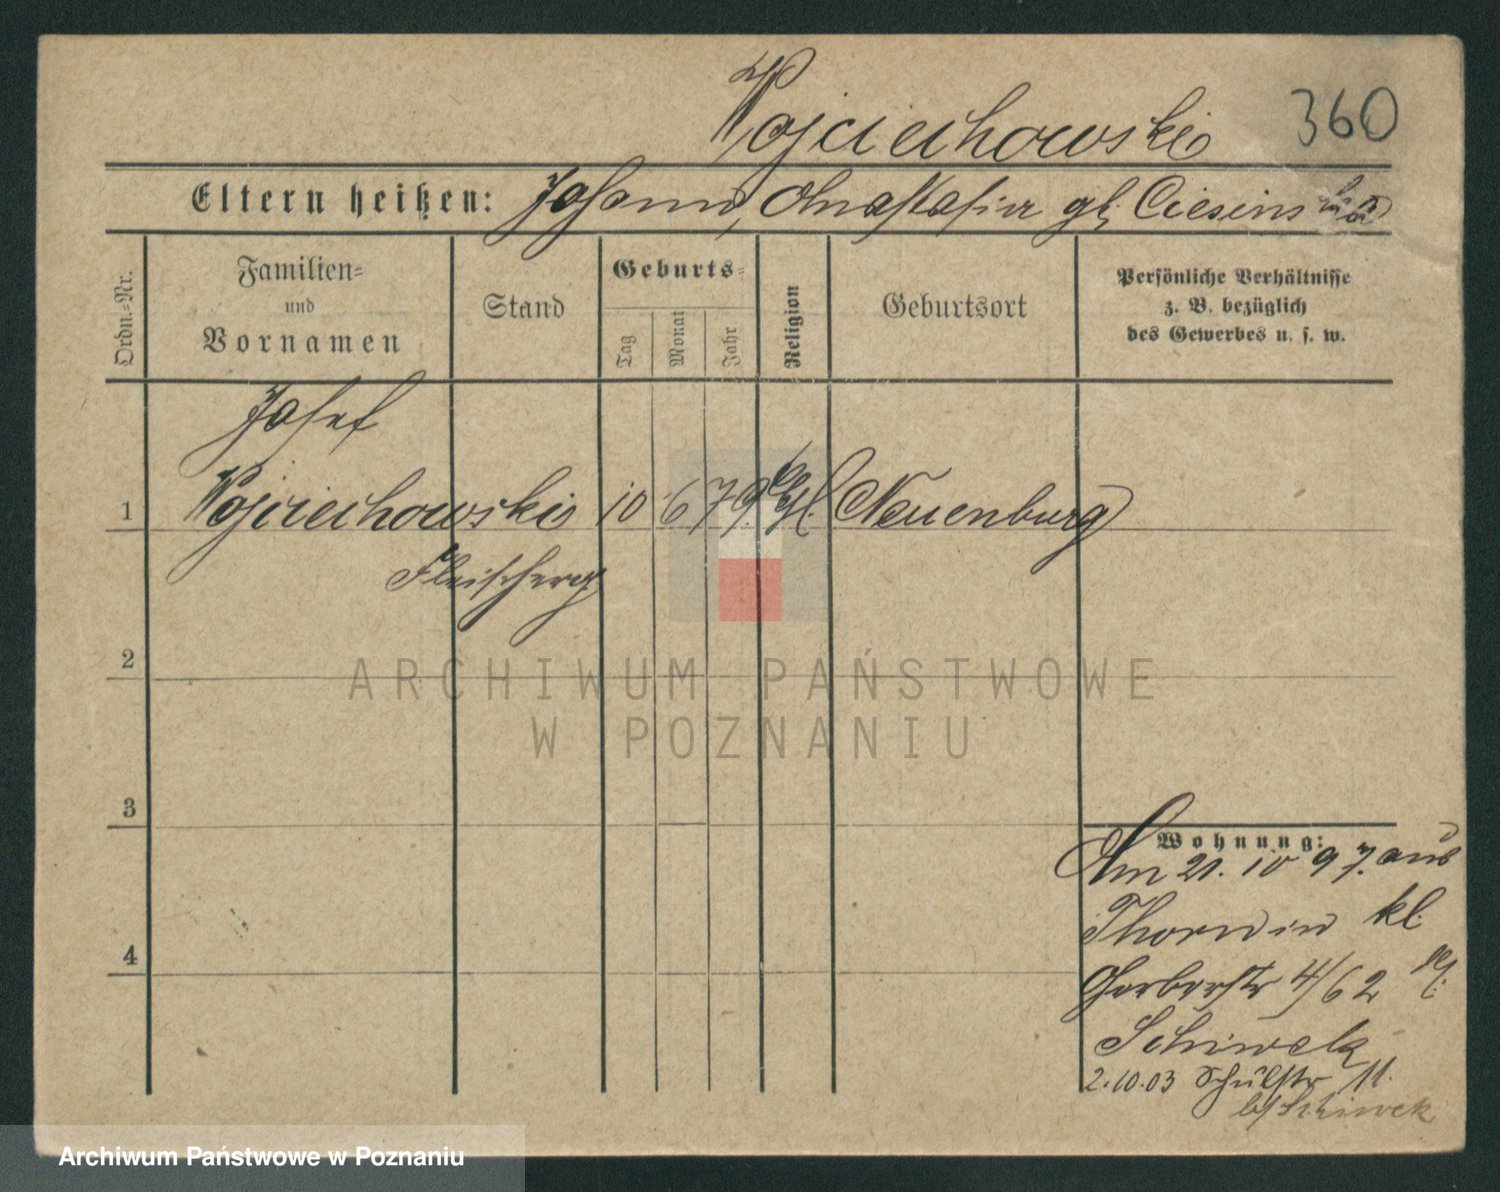 Wojciechowski
360
Eltern heißen: Johann, Anastasia gb. Ciesinska
Ordn.-Nr.
Familien-
und
Vornamen
Stand
Geburts-
Tag
Monat
Jahr
Religion
Geburtsort
Persönliche Verhältnisse
z. B. bezüglich
des Gewerbes u. s. w.
Josef
1 Wojciechowski 10 6 79 Neuenburg
Fleischerg
2
ARCHIWUM PAŃSTWOWE
W POZNANIU
3
Wohnung:
Am 21. 10 97. aus
Thorn in kl.
4
Gerberstr 4/62
Schiwek
2.10.03 Schulstr 11.
b/ Schiwek
Archiwum Państwowe w Poznaniu